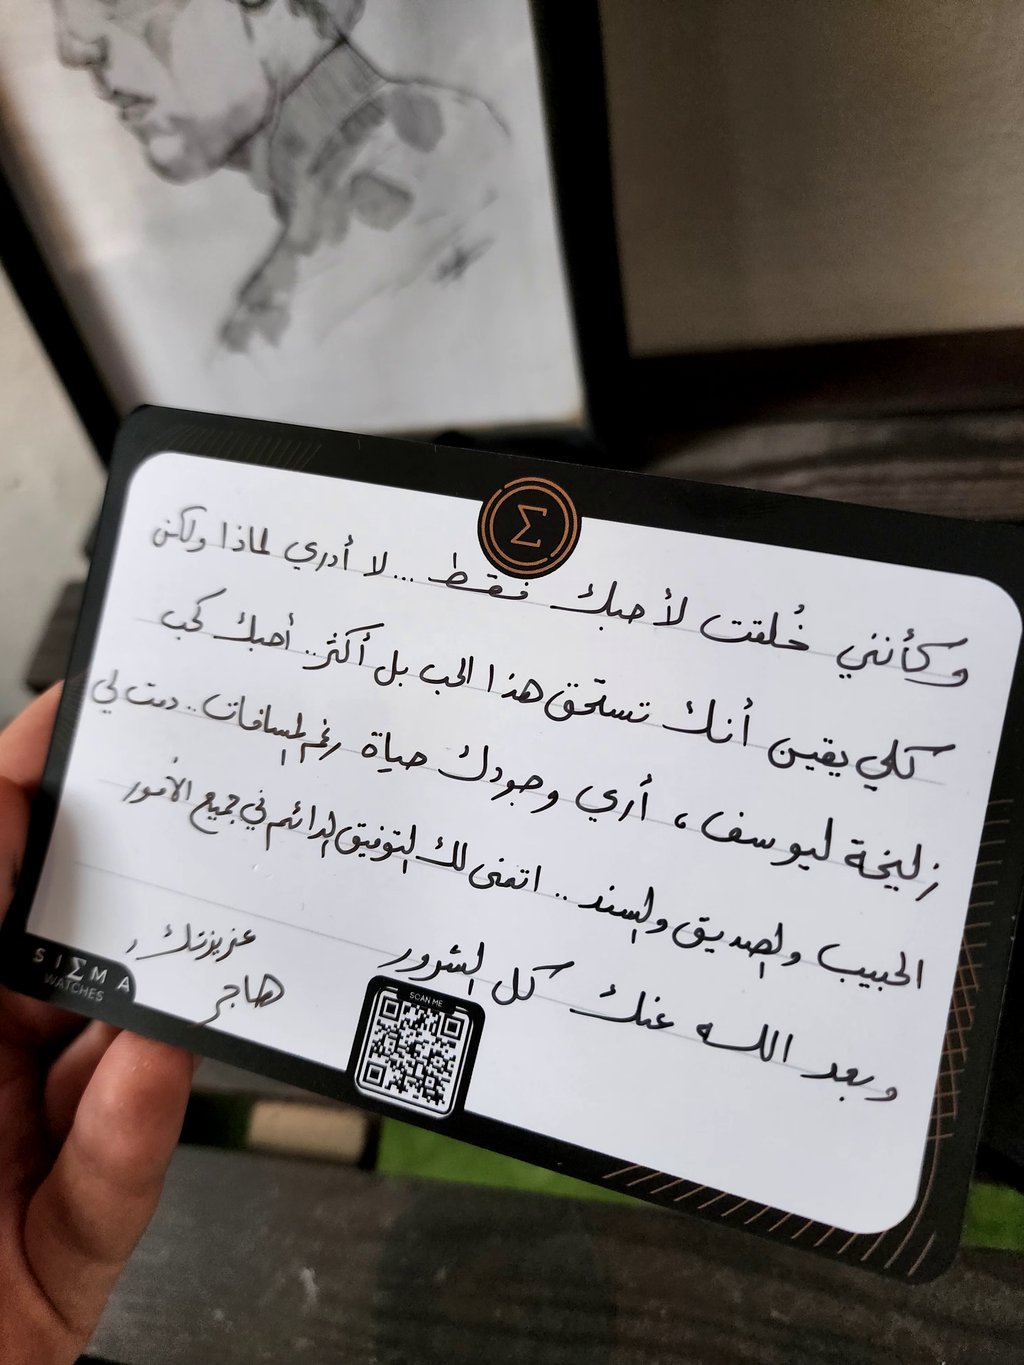 Σ
وكأنني خُلقت لأحبك فقط... لا أدري لماذا ولكن
كلي يقين أنك تستحق هذا الحب بل أكثر.. أحبك كحب
زليخة ليوسف، أرى وجودك حياة رغم المسافات.. دمت لي
الحبيب والصديق والسند.. اتمنى لك التوفيق الدائم في جميع الأمور
وبعد الله عنك كل الشرور
عزيزتك,
هاجر
SCAN ME
SIΣMA
WATCHES